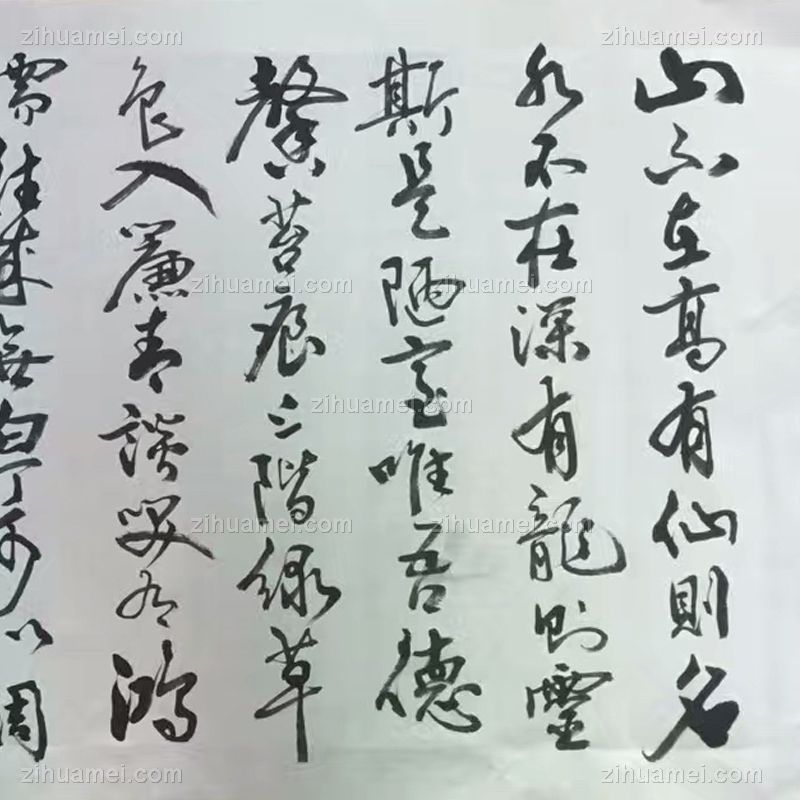 山不在高有仙則名
水不在深有龍則靈
斯是陋室唯吾德
馨苔痕上階綠草
色入簾青談笑有鴻
儒往來無白丁可以調
zihuamei.com
zihuamei.com
zihuamei.com
zihuamei.com
zihuamei.com
zihuamei.com
zihuamei.com
zihuamei.com
zihuamei.com
zihuamei.com
zihuamei.com